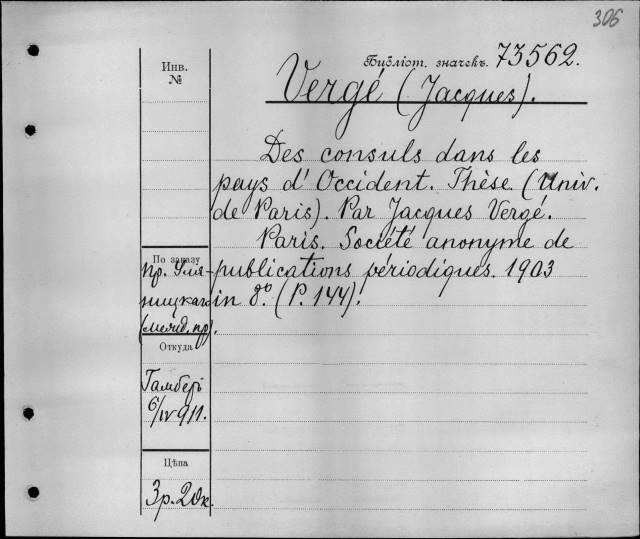 306
Инв.
№
Библіот. значекъ. 73562.
Vergé (Jacques).
Des consuls dans les
pays d'Occident. Thèse. (Univ.
de Paris). Par Jacques Vergé.
Paris. Société anonyme de
publications périodiques. 1903
in 8º. (P. 144).
По заказу
пр. Уля-
ницкаго
(межд. пр).
Откуда
Гамбергъ
6/IV 911.
Цѣна
3 р. 20 к.